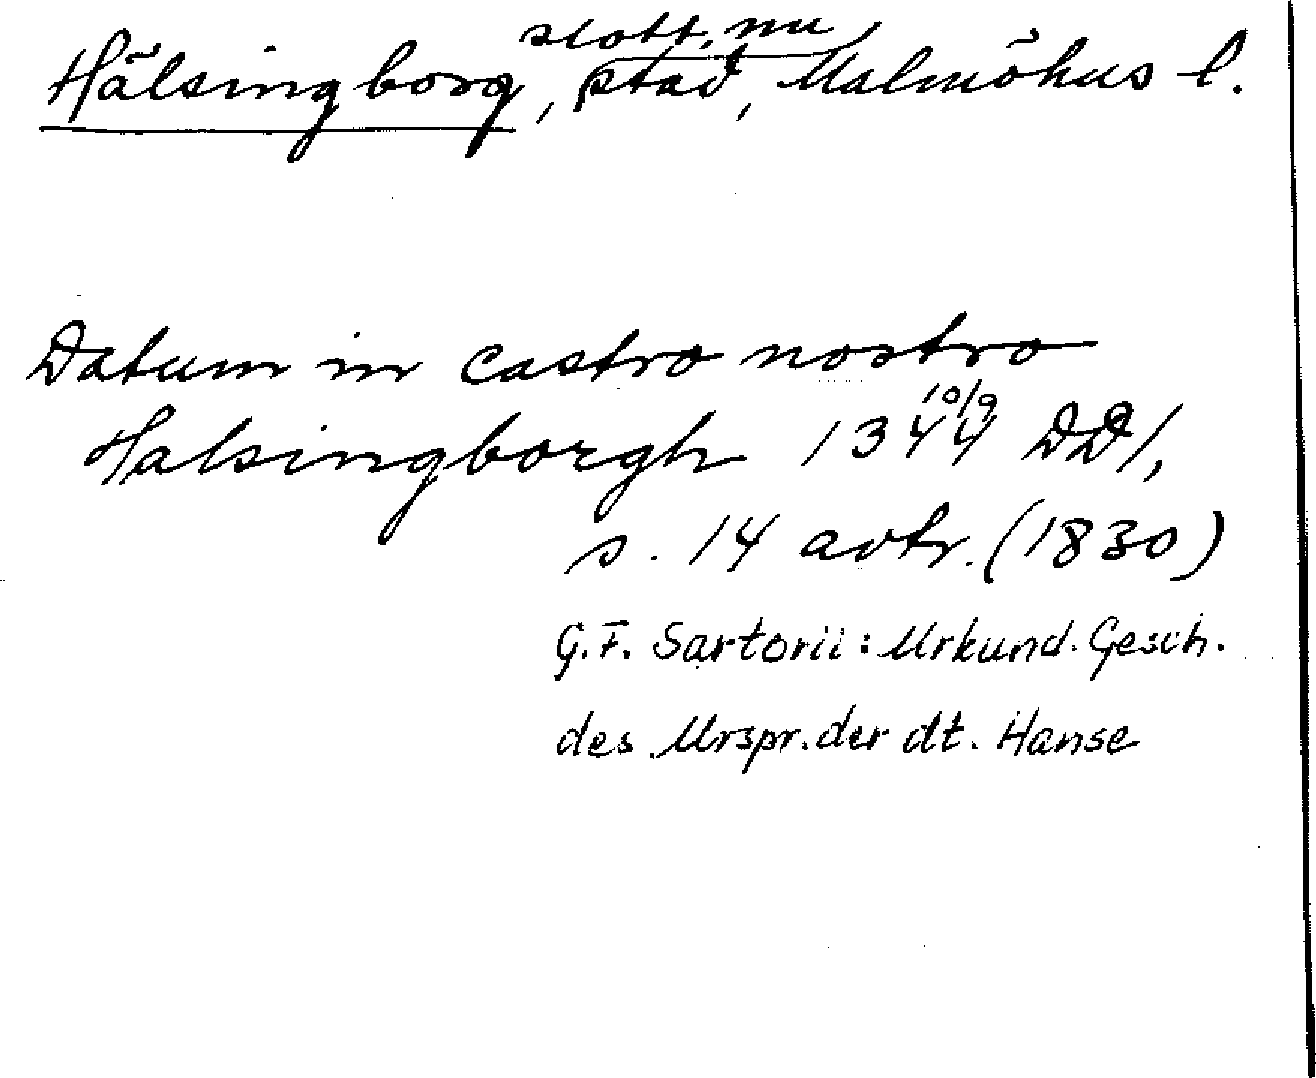 slott, nu
Hälsingborg, stad, Malmöhus l.
Datum in castro nostro
10/9
Halsingborgh 1344 DD/,
s. 14 avtr. (1830)
G.F. Sartorii: Urkund. Gesch.
des Urspr. der dt. Hanse